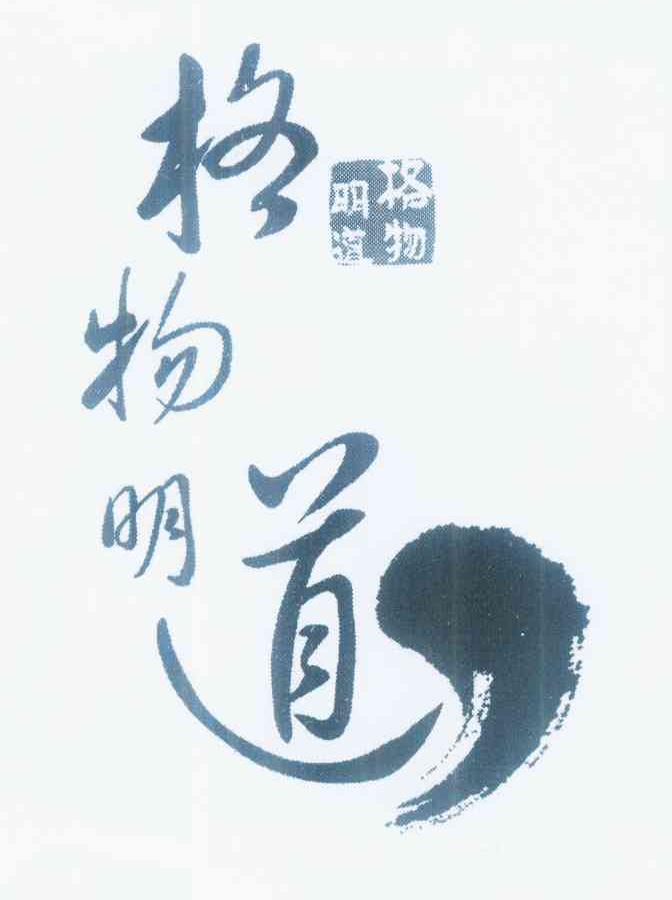 格物明道
格物
明道